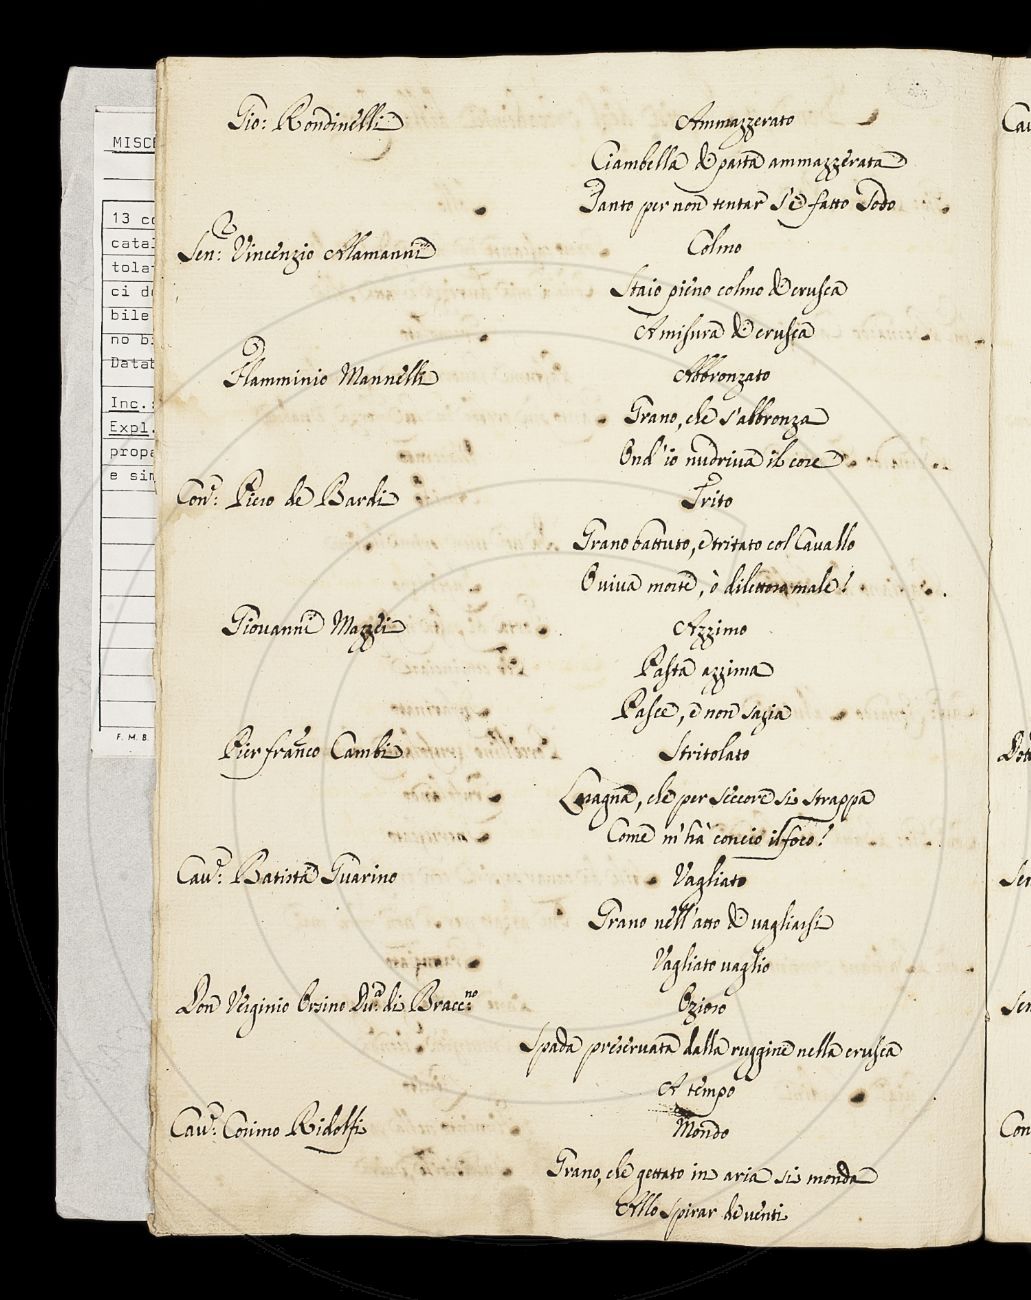 MISCE
13 co
catal
tola
ci de
bile
no bi
Datab
Inc.:
Expl.
propa
e sim
F. M. B.
Gio: Rondinelli
Ammazzerato
Ciambella di pasta ammazzerata
Tanto per non tentar s'è fatto sodo
Sen: Vincenzio Alamanni
Colmo
Staio pieno colmo di crusca
A misura di crusca
Flamminio Mannelli
Abbronzato
Grano, che s'abbronza
Ond'io nudriva il core
Con: Piero de Bardi
Trito
Grano battuto, e tritato col Cavallo
O viva morte, ò dilettoso male!
Giovanni Mazzei
Azzimo
Pasta azzima
Pasce, e non sazia
Pier franco Cambi
Stritolato
che per seccore si strappa
Come m'hà concio il foco!
Cav: Batista Guarino
Vagliato
Grano nell'atto di vagliarsi
Vagliato vaglio
Don Verginio Orsino Du.a di Bracc.no
Ozioso
Spada preservata dalla ruggine nella crusca
A tempo
Cav: Cosimo Ridolfi
Mondo
Grano, che gettato in aria si monda
Allo spirar de venti
Cav
Dott
Sen
Sen
Con